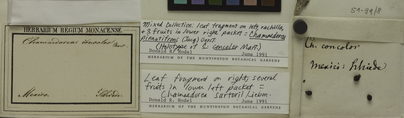 HERBARIUM REGIUM MONACENSE.
Chamaedorea concolor Mart.
Mexico. Schiede.
Mixed Collection: leaf fragment on left, rachilla,
+ 3 fruits in lower right packet = Chamaedorea
pinnatifrons (Jacq.) Oerst.
(Holotype of C. concolor Mart.)
Donald R. Hodel June 1991
HERBARIUM OF THE HUNTINGTON BOTANICAL GARDENS
Leaf fragment on right, several
fruits in lower left packet =
Chamaedorea sartorii Liebm.
Donald R. Hodel June 1991
HERBARIUM OF THE HUNTINGTON BOTANICAL GARDENS
Ch. concolor
Mexico: Schiede